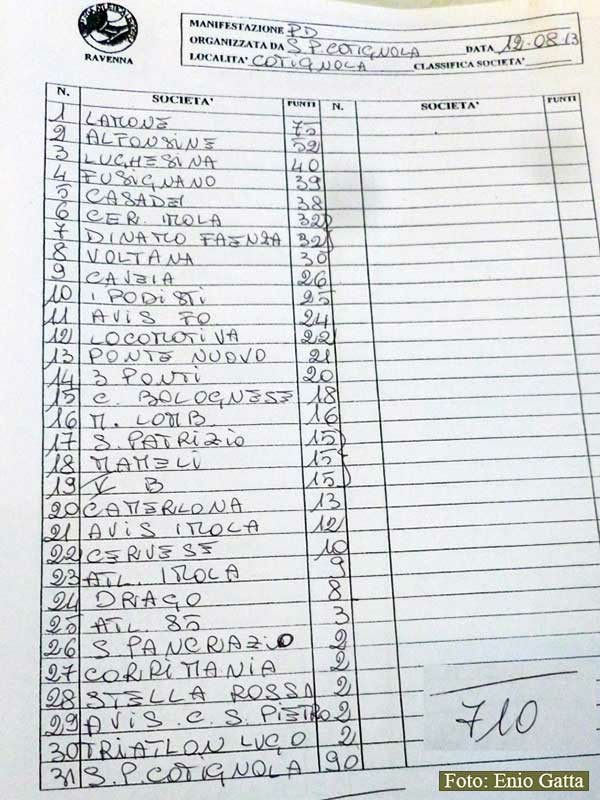 RAVENNA
MANIFESTAZIONE PD
ORGANIZZATA DA S.P. COTIGNOLA DATA 12-08-13
LOCALITA' COTIGNOLA CLASSIFICA SOCIETA'
N. SOCIETA' PUNTI N. SOCIETA' PUNTI
1 LAMONE 75
2 ALFONSINE 52
3 LUGHESINA 40
4 FUSIGNANO 39
5 CASADEI 38
6 CER. IMOLA 32
7 DINAMO FAENZA 32
8 VOLTANA 30
9 CAVEJA 26
10 I PODISTI 25
11 AVIS FO 24
12 LOCOMOTIVA 22
13 PONTE NUOVO 21
14 3 PONTI 20
15 C. BOLOGNESE 18
16 M. LOMB 16
17 S. PATRIZIO 15
18 MAMELI 15
19 V B 15
20 CAMERLONA 13
21 AVIS IMOLA 12
22 CERVESE 10
23 ATL. IMOLA 9
24 DRAGO 8
25 ATL. 85 3
26 S PANCRAZIO 2
27 CORRIMANIA 2
28 STELLA ROSSA 2
29 AVIS C. S. PIETRO 2
30 TRIATLON LUGO 2
31 S.P. COTIGNOLA 90
710
Foto: Enio Gatta